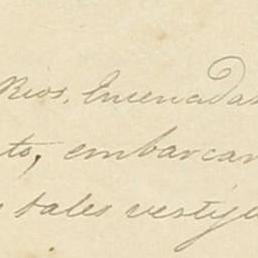 Rios, Encenadas
to, embarcan
tales vestigi